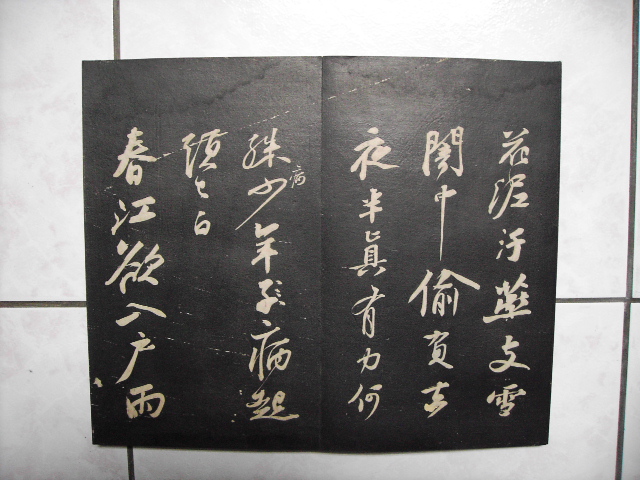 花泥汙燕支雪
闇中偷負去
夜半真有力何
殊病少年子病起
頭已白
春江欲入戶雨